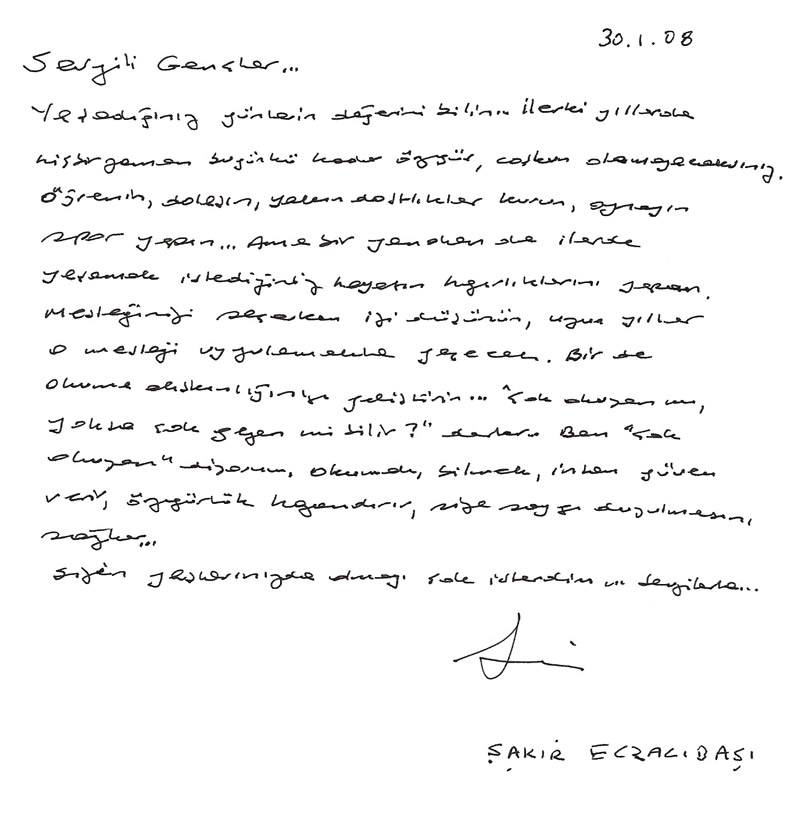 30.1.08
Sevgili Gençler...
Yaşadığınız günlerin değerini bilin... İlerki yıllarda
hiçbir zaman bugünkü kadar özgür, coşkun olamayacaksınız.
Öğrenin, dolaşın, yakın dostluklar kurun, oynayın
spor yapın... Ama bir yandan da ilerde
yaşamak istediğiniz hayatın hazırlıklarını yapın.
Mesleğinizi seçerken iyi düşünün, uzun yıllar
o mesleği uygulamakla geçecek. Bir de
okuma alışkanlığınızı geliştirin... "Çok okuyan mı,
yoksa çok gezen mi bilir?" derler. Ben "çok
okuyan" diyorum, okumak, bilmek, insana güven
verir, özgürlük kazandırır, size saygı duyulmasını
sağlar...
Sizin yaşlarınızda olmayı çok isterdim ... Sevgilerle...
ŞAKİR ECZACIBAŞI